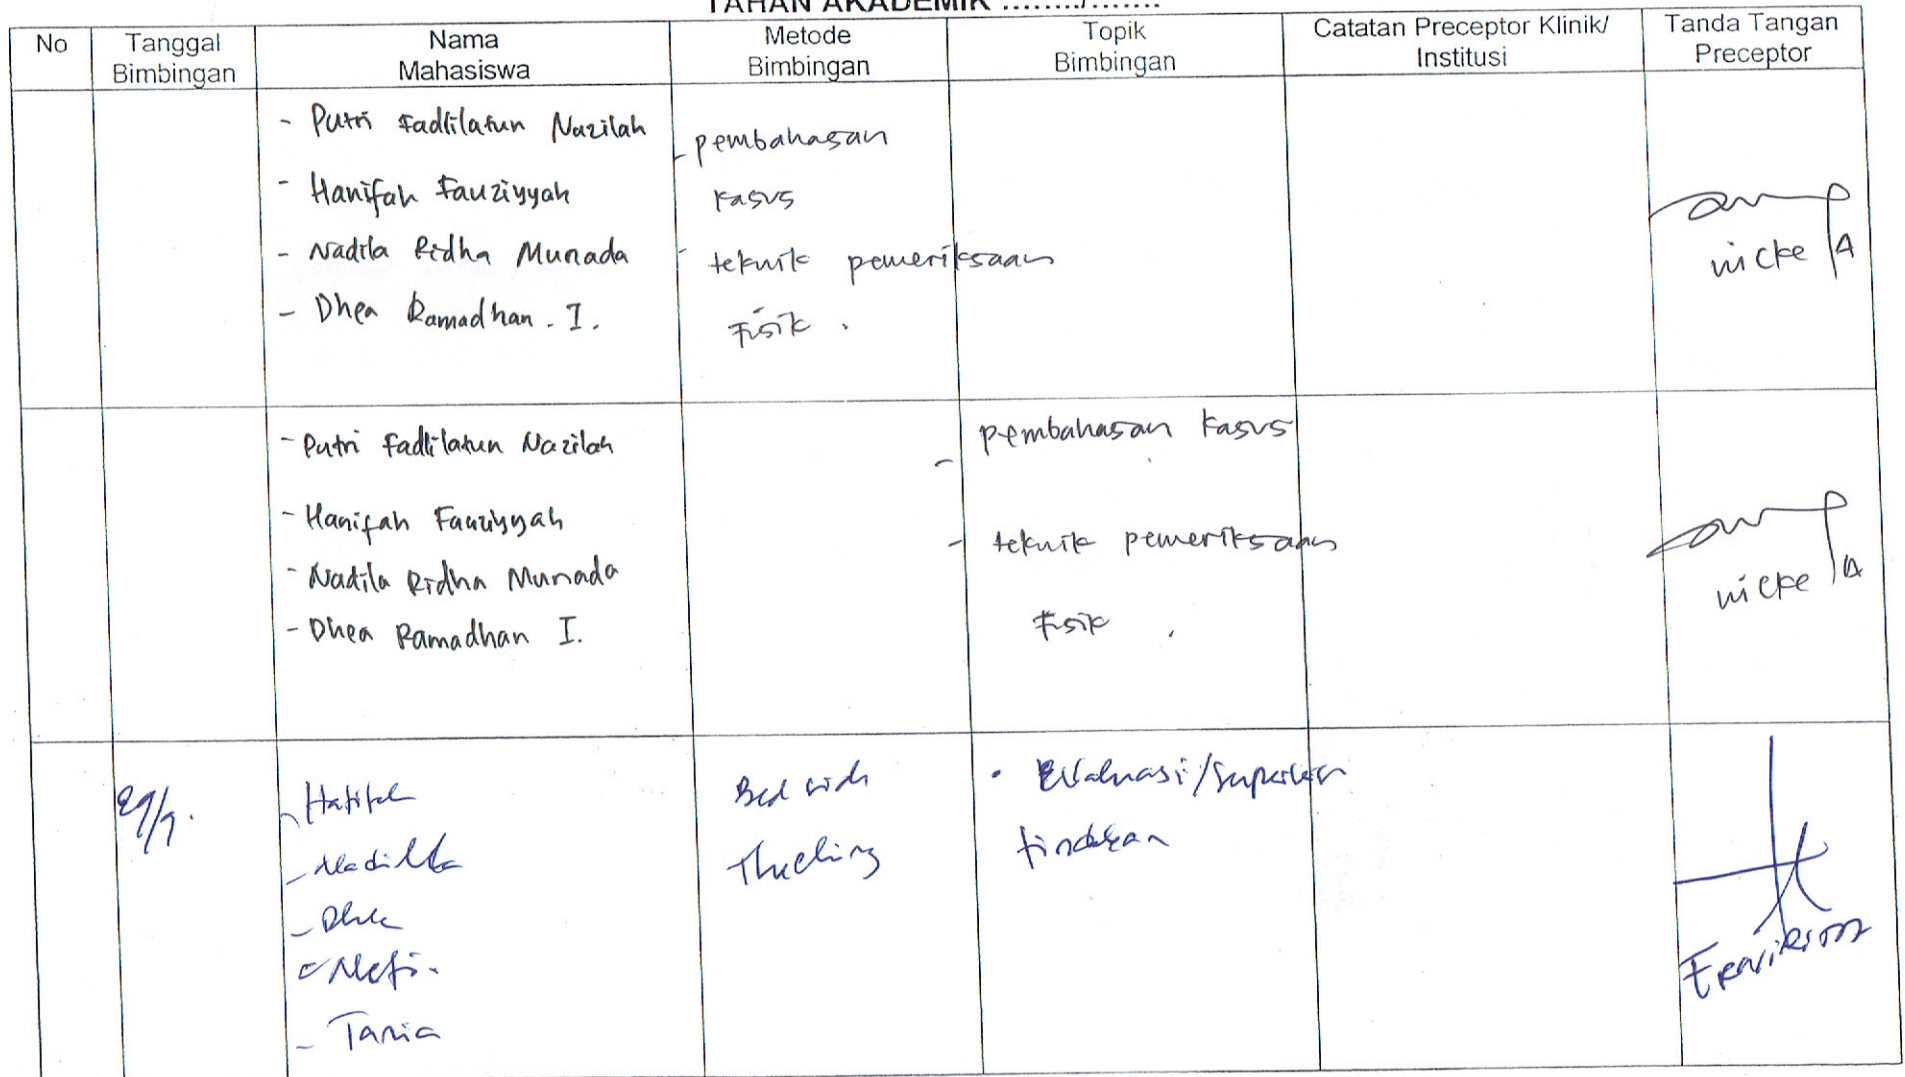 TAHAN AKADEMIK ......../.......
No
Tanggal Bimbingan
Nama Mahasiswa
Metode Bimbingan
Topik Bimbingan
Catatan Preceptor Klinik/ Institusi
Tanda Tangan Preceptor
- Putri Fadlilatun Nazilah
- Hanifah Fauziyyah
- Nadila Ridha Munada
- Dhea Ramadhan . I.
- pembahasan
kasus
- teknik pemeriksaan
Fisik .
nicke
- Putri Fadlilatun Nazilah
- Hanifah Fauziyyah
- Nadila Ridha Munada
- Dhea Ramadhan I.
- pembahasan kasus
- teknik pemeriksaan
Fisik .
nicke
29/9.
- Nadilla
- Dhea
- Tania
Bed side
• Evaluasi/
tindakan